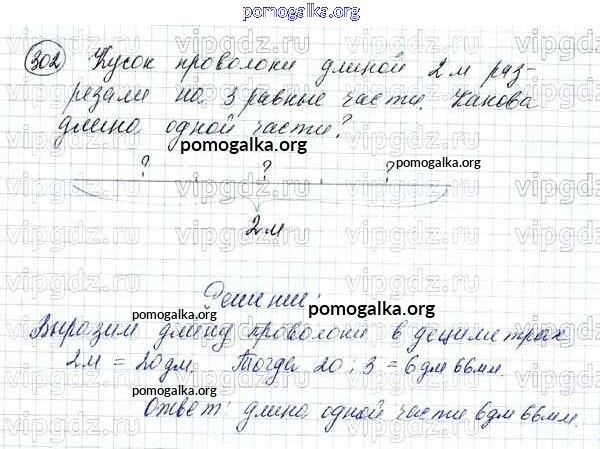 pomogalka.org
302 Кусок проволоки длиной 2 м раз-
резали на 3 равные части. Какова
длина одной части?
pomogalka.org
pomogalka.org
? ? ?
2 м
Решение:
pomogalka.org
Выразим длину проволоки в дециметрах
2 м = 20 дм. Тогда 20 : 3 = 6 дм 66 мм.
pomogalka.org
Ответ: длина одной части 6 дм 66 мм.
pomogalka.org